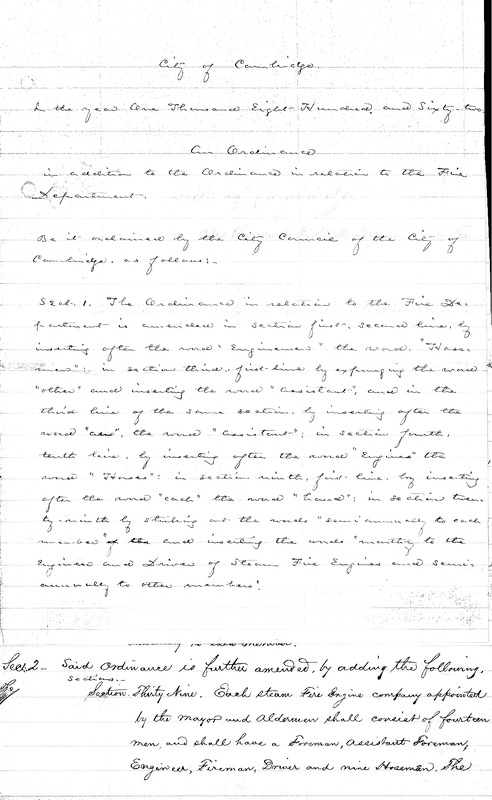 City of Cambridge.
In the year One Thousand Eight Hundred and Sixty-two.
An Ordinance
in addition to the Ordinance in relation to the Fire
Department.
Be it ordained by the City Council of the City of
Cambridge, as follows:-
Sect. 1. The Ordinance in relation to the Fire De-
partment is amended in section first, second line, by
inserting after the word "Enginemen" the word "Hose-
men"; in section third, first line by expunging the word
"other" and inserting the word "assistant", and in the
third line of the same section, by inserting after the
word "an", the word "assistant"; in section fourth,
tenth line, by inserting after the word "Engines" the
word "Horses"; in section ninth, first line, by inserting
after the word "each" the word "hand"; in section twen-
ty-ninth by striking out the words "semi annually to each
member" of the and inserting the words "monthly to the
Engineer and Driver of Steam Fire Engines and semi-
annually to other members".
Sect. 2 - Said Ordinance is further amended, by adding the following,
sections.-
Section Thirty Nine. Each steam Fire Engine company appointed
by the Mayor and Aldermen shall consist of fourteen
men, and shall have a Foreman, Assistant Foreman,
Engineer, Fireman, Driver and nine Hosemen. The